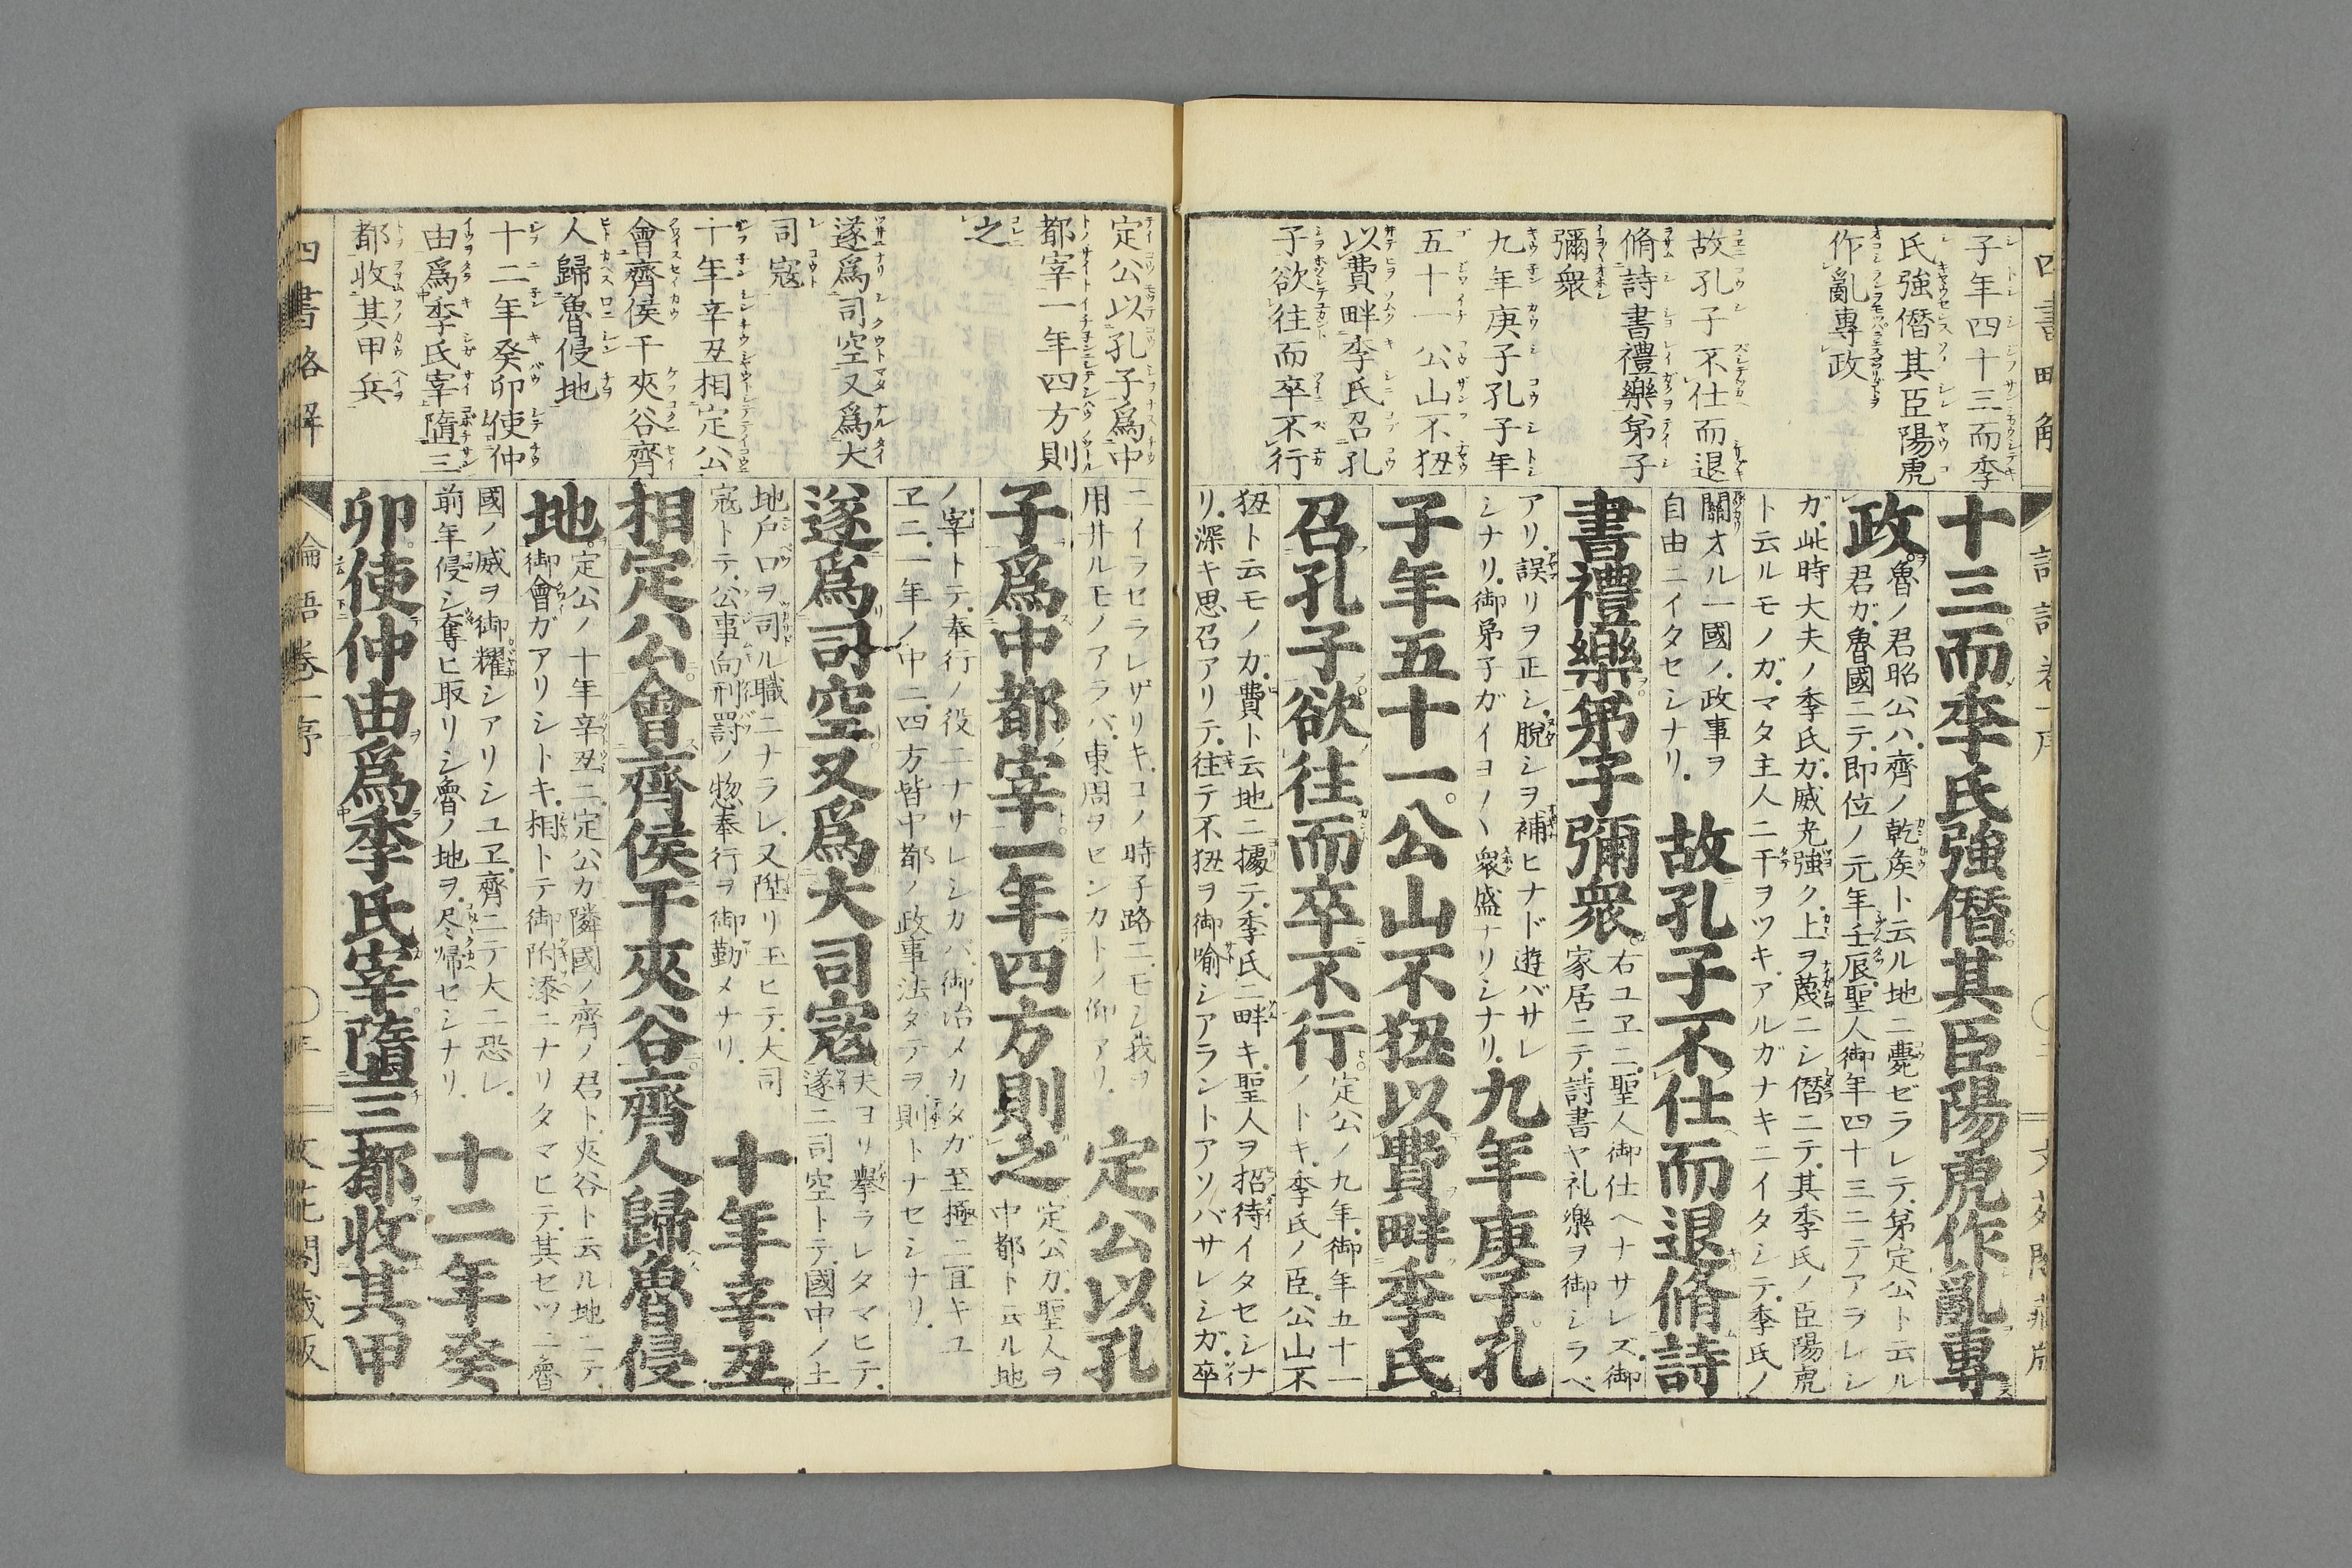 子年四十三而季
氏強僭其臣陽虎
作亂專政
故孔子不仕而退
脩詩書禮樂弟子
彌衆
九年庚子孔子年
五十一公山不狃
以費畔季氏召孔
子欲往而卒不行
十三而季氏強僭其臣陽虎作亂專
政
魯ノ君昭公ハ齊ノ乾侯ト云ル地ニ薨ゼラレテ第定公ト云ル
君ガ魯國ニテ即位ノ元年壬辰聖人御年四十三ニテアラレシ
ガ此時大夫ノ季氏ガ威充強ク上ヲ蔑ニシ僭ニテ其季氏ノ臣陽虎
ト云ルモノガマタ主人ニ干ヲツキアルガナキニイタシテ季氏ノ
關オル一國ノ政事ヲ
自由ニイタセシナリ
故孔子不仕而退脩詩
書禮樂弟子彌衆
右ユヱニ聖人御仕ヘナサレズ御
家居ニテ詩書ヤ礼樂ヲ御シラベ
アリ誤リヲ正シ脫シヲ補ヒナド遊バサレ
シナリ御弟子ガイヨ〱衆盛ナリシナリ
九年庚子孔
子年五十一公山不狃以費畔季氏
召孔子欲往而卒不行
定公ノ九年御年五十一
ノトキ季氏ノ臣公山不
狃ト云モノガ費ト云地ニ據テ季氏ニ畔キ聖人ヲ招待イタセシナ
リ深キ思召アリテ往テ不狃ヲ御喻シアラントアソバサレシガ卒
定公以孔子爲中
都宰一年四方則
之
遂爲司空又爲大
司寇
十年辛丑相定公
會齊侯于夾谷齊
人歸魯侵地
十二年癸卯使仲
由爲季氏宰隳三
都收其甲兵
ニイラセラレザリキコノ時子路ニモシ我ヲ
用井ルモノアラバ東周ヲセンカトノ仰アリ
定公以孔
子爲中都宰一年四方則之
定公ガ聖人ヲ
中都ト云ル地
ノ宰トテ奉行ノ役ニナサレシカバ御治メカタガ至極ニ宜キユ
ヱニ一年ノ中ニ四方皆中都ノ政事法ダテヲ則トナセシナリ
遂爲司空又爲大司寇
夫ヨリ擧ラレタマヒテ
遂ニ司空トテ國中ノ土
地戶口ヲ司ル職ニナラレ又陞リ玉ヒテ大司
寇トテ公事向刑罰ノ惣奉行ヲ御勤メナリ
十年辛丑
相定公會齊侯于夾谷齊人歸魯侵
地
定公ノ十年辛丑ニ定公カ隣國ノ齊ノ君ト夾谷ト云ル地ニテ
御會ガアリシトキ相トテ御附添ニナリタマヒテ其セツニ魯
國ノ威ヲ御耀シアリシユヱ齊ニテ大ニ恐レ
前年侵シ奪ヒ取リシ魯ノ地ヲ尽帰セシナリ
十二年癸
卯使仲由爲季氏宰隳三都收其甲
四書略解
論語卷一序